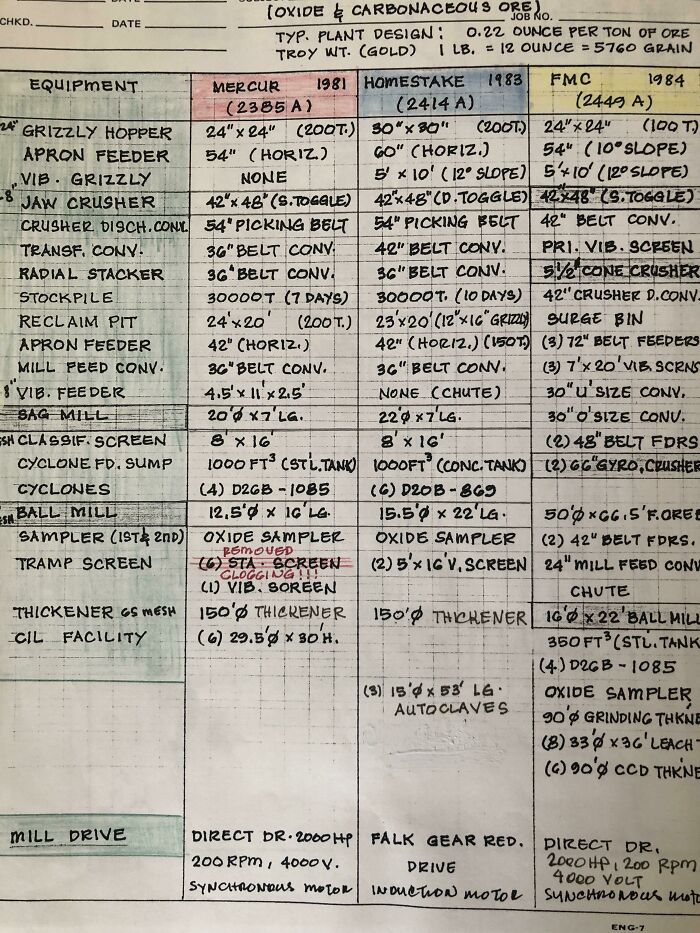 DATE DATE
(OXIDE & CARBONACEOUS ORE)
CHKD. DATE JOB NO.
TYP. PLANT DESIGN: 0.22 OUNCE PER TON OF ORE
TROY WT. (GOLD) 1 LB. = 12 OUNCE = 5760 GRAIN
EQUIPMENT MERCUR 1981 HOMESTAKE 1983 FMC 1984
(2385 A) (2414 A) (2449 A)
24" GRIZZLY HOPPER 24" x 24" (200T.) 30" x 30" (200T.) 24" x 24" (100 T)
APRON FEEDER 54" (HORIZ.) 60" (HORIZ.) 54" (10° SLOPE)
VIB. GRIZZLY NONE 5' x 10' (12° SLOPE) 5' x 10' (12° SLOPE)
8" JAW CRUSHER 42" x 48" (S. TOGGLE) 42" x 48" (D. TOGGLE) 42" x 48" (S. TOGGLE)
CRUSHER DISCH. CONV. 54" PICKING BELT 54" PICKING BELT 42" BELT CONV.
TRANSF. CONV. 36" BELT CONV. 42" BELT CONV. PRI. VIB. SCREEN
RADIAL STACKER 36" BELT CONV. 36" BELT CONV. 5 1/2' CONE CRUSHER
STOCKPILE 30000 T (7 DAYS) 30000 T. (10 DAYS) 42" CRUSHER D. CONV.
RECLAIM PIT 24' x 20' (200T.) 23' x 20' (12" x 16" GRIZZLY) SURGE BIN
APRON FEEDER 42" (HORIZ.) 42" (HORIZ.) (150T.) (3) 72" BELT FEEDERS
MILL FEED CONV. 36" BELT CONV. 36" BELT CONV. (3) 7' x 20' VIB. SCRNS
8" VIB. FEEDER 4.5' x 11' x 2.5' NONE (CHUTE) 30" U' SIZE CONV.
SAG MILL 20'Ø x 7' LG. 22'Ø x 7' LG. 30" O' SIZE CONV.
SH CLASSIF. SCREEN 8' x 16' 8' x 16' (2) 48" BELT FDRS
CYCLONE FD. SUMP 1000 FT³ (STL. TANK) 1000 FT³ (CONC. TANK) (2) 66" GYRO. CRUSHER
CYCLONES (4) D26B - 1085 (6) D20B - 869
SH BALL MILL 12.5'Ø x 16' LG. 15.5'Ø x 22' LG. 50'Ø x 66.5' F. ORE
SAMPLER (1ST & 2ND) OXIDE SAMPLER OXIDE SAMPLER (2) 42" BELT FDRS.
REMOVED
TRAMP SCREEN (6) STA. SCREEN (2) 5' x 16' V. SCREEN 24" MILL FEED CONV
CLOGGING!!!
(1) VIB. SCREEN CHUTE
THICKENER 65 MESH 150'Ø THICKENER 150'Ø THICKENER 16'Ø x 22' BALL MILL
CIL FACILITY (6) 29.5'Ø x 30'H. 350 FT³ (STL. TANK
(4) D26B - 1085
(3) 15'Ø x 53' LG. OXIDE SAMPLER
AUTOCLAVES 90'Ø GRINDING THKNE
(8) 33'Ø x 36' LEACH
(6) 90'Ø CCD THKNE
MILL DRIVE DIRECT DR. 2000 HP FALK GEAR RED. DIRECT DR.
200 RPM, 4000 V. DRIVE 2000 HP, 200 RPM
4000 VOLT
SYNCHRONOUS MOTOR INDUCTION MOTOR SYNCHRONOUS MOTO
ENG-7